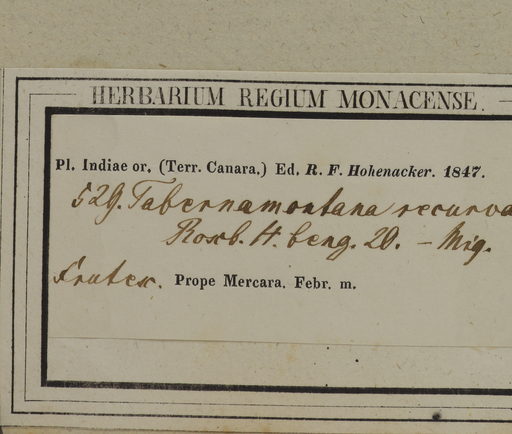 HERBARIUM REGIUM MONACENSE.
Pl. Indiae or. (Terr. Canara.) Ed. R. F. Hohenacker. 1847.
529. Tabernamontana recurva
Roxb. H. beng. 20. – Miq.
Frutex. Prope Mercara. Febr. m.